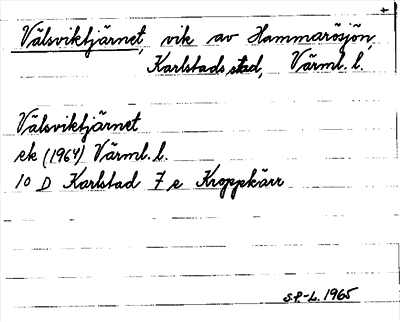 Välsviktjärnet, vik av Hammarösjön,
Karlstads stad, Värml. l.
Välsviktjärnet
ek (1964) Värml. l.
10 D Karlstad 7 e Kroppkärr
S.P-L. 1965